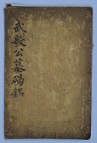 武毅公墓碣銘